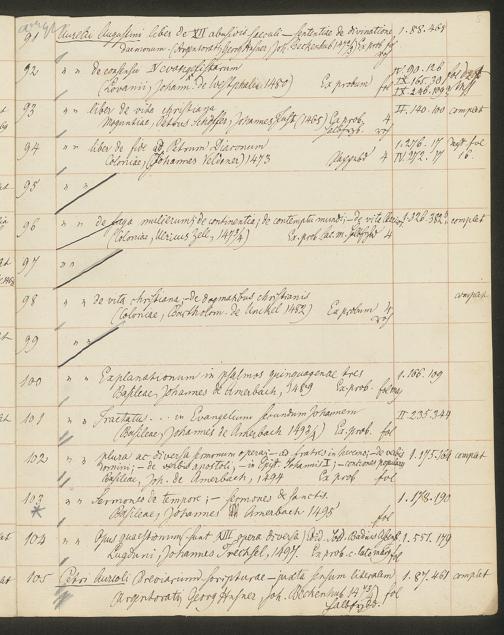 91 Aurelii Augustini liber de XII abusivis saeculi – sententiae de divinatione 1.88.468
daemonum (Argentorati, Georg Husner, Joh. Beckenhub 1473) Ex prob fol
92 " " de consensu IV evangelistarum IV.90.126 fol
(Lovanii, Johann. de Westphalia 1480) Ex probum fol IX.165.301
IX.246.892
93 " " liber de vita christiana II.140.100 complet
Moguntiae, Petrus Schöffer, Johannes Fust (1465) Ex prob. 4
94 " " liber de fide ad Petrum Diaconum 1.276.17 fol
Coloniae, (Johannes Veldener) 1473 4 IV.272.17 16.
95 " "
96 " " de fuga mulierum; de continentia; de contemptu mundi; – de vita 1.326.382 complet
(Coloniae, Ulricus Zell, 1473/4) Ex. prob. 4
97 " "
98 " " de vita christiana; – de dogmatibus christianis complet
(Coloniae, Bartholom. de Unckel 1482) Ex probum 4
99 " "
100 " " Explanationum in psalmos quinquagenae tres 1.166.109
Basileae, Johannes de Amerbach, 1489 Ex. prob. fol
101 " " Tractatus . . . in Evangelium secundum Johannem II.235.349
(Basileae, Johannes de Amerbach 1493/4) Ex. prob. fol
102 " " plura ac diversa sermonum opera; – ad fratres in heremo; – de verbis 1.175.164 complet
Domini; – de verbis apostoli; – in Epist. Johannis I; – contiones
Basileae, Joh. de Amerbach, 1494 Ex prob fol
103 " " Sermones de tempore; – sermones de sanctis. 1.178.190
* Basileae, Johannes de Amerbach 1495 fol
104 " " Opus quaestionum sunt XIII opera diversa; 1.551.179
Lugduni, Johannes Trechsel, 1497. Ex prob. fol
105 Petri Aurioli Breviarium scripturae – juxta sensum literalem 1.87.461 complet
Argentorati, Georg Husner, Joh. Beckenhub 1473/4) fol